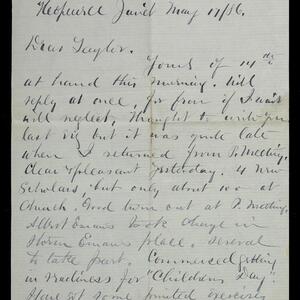 Hopewell Junct May 17/86.
Dear Taylor.
Yours of 14th
at hand this morning. Will
reply at once, for fear if I wait
will neglect, thought to write you
last eve but it was quite late
when I returned from P. Meeting.
Clear & pleasant yesterday. 4 new
Scholars, but only about 100 at
church. Good turn out at P. Meeting,
Albert Emans took charge in
Storm Emans place. several
to take part. Commenced getting
in readiness for "Childrens Day"
Have got some printed exercises